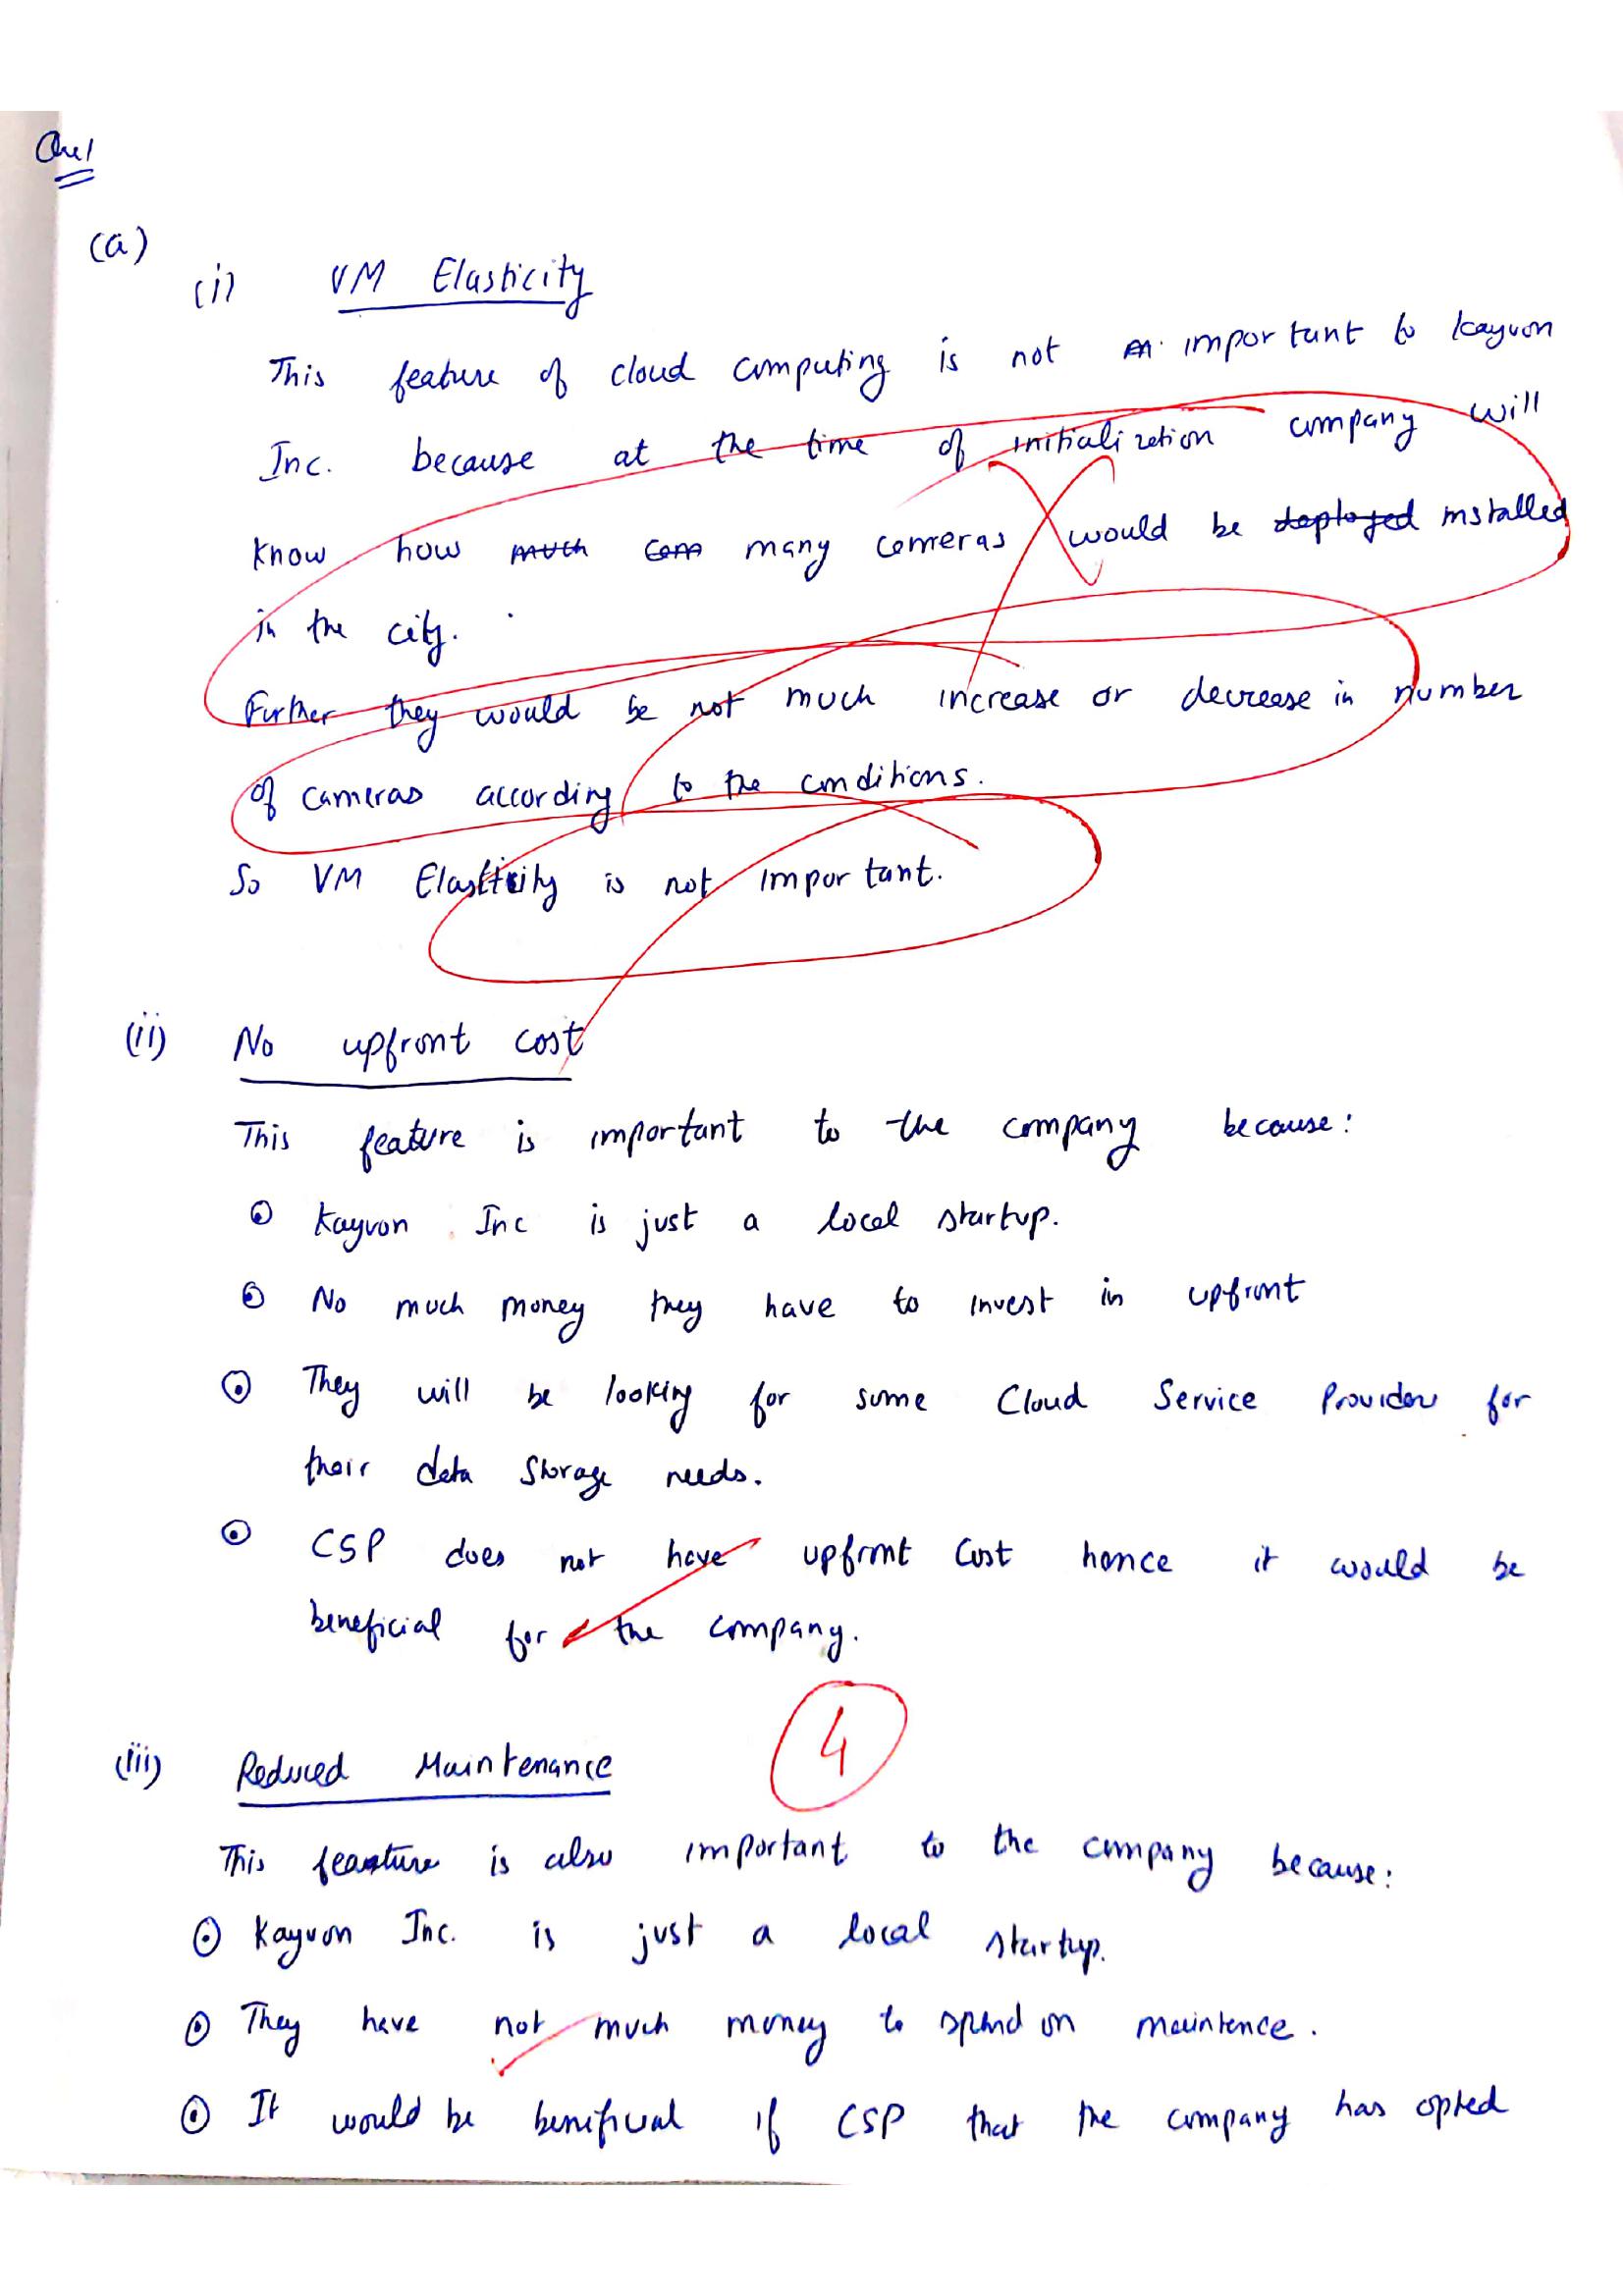 Que1
(a)
(i) VM Elasticity
This feature of cloud computing is not important to Kayvon
Inc. because at the time of initialization company will
know how much com many cameras would be deployed installed
in the city.
Further they would be not much increase or decrease in number
of cameras according to the conditions.
So VM Elasticity is not important.
(ii) No upfront cost
This feature is important to the company because:
Kayvon Inc is just a local startup.
No much money they have to invest in upfront
They will be looking for some Cloud Service Provider for
their data storage needs.
CSP does not have upfront cost hence it would be
beneficial for the company.
4
(iii) Reduced Maintenance
This feature is also important to the company because:
Kayvon Inc. is just a local startup.
They have not much money to spend on maintence.
It would be benificial if CSP that the company has opted